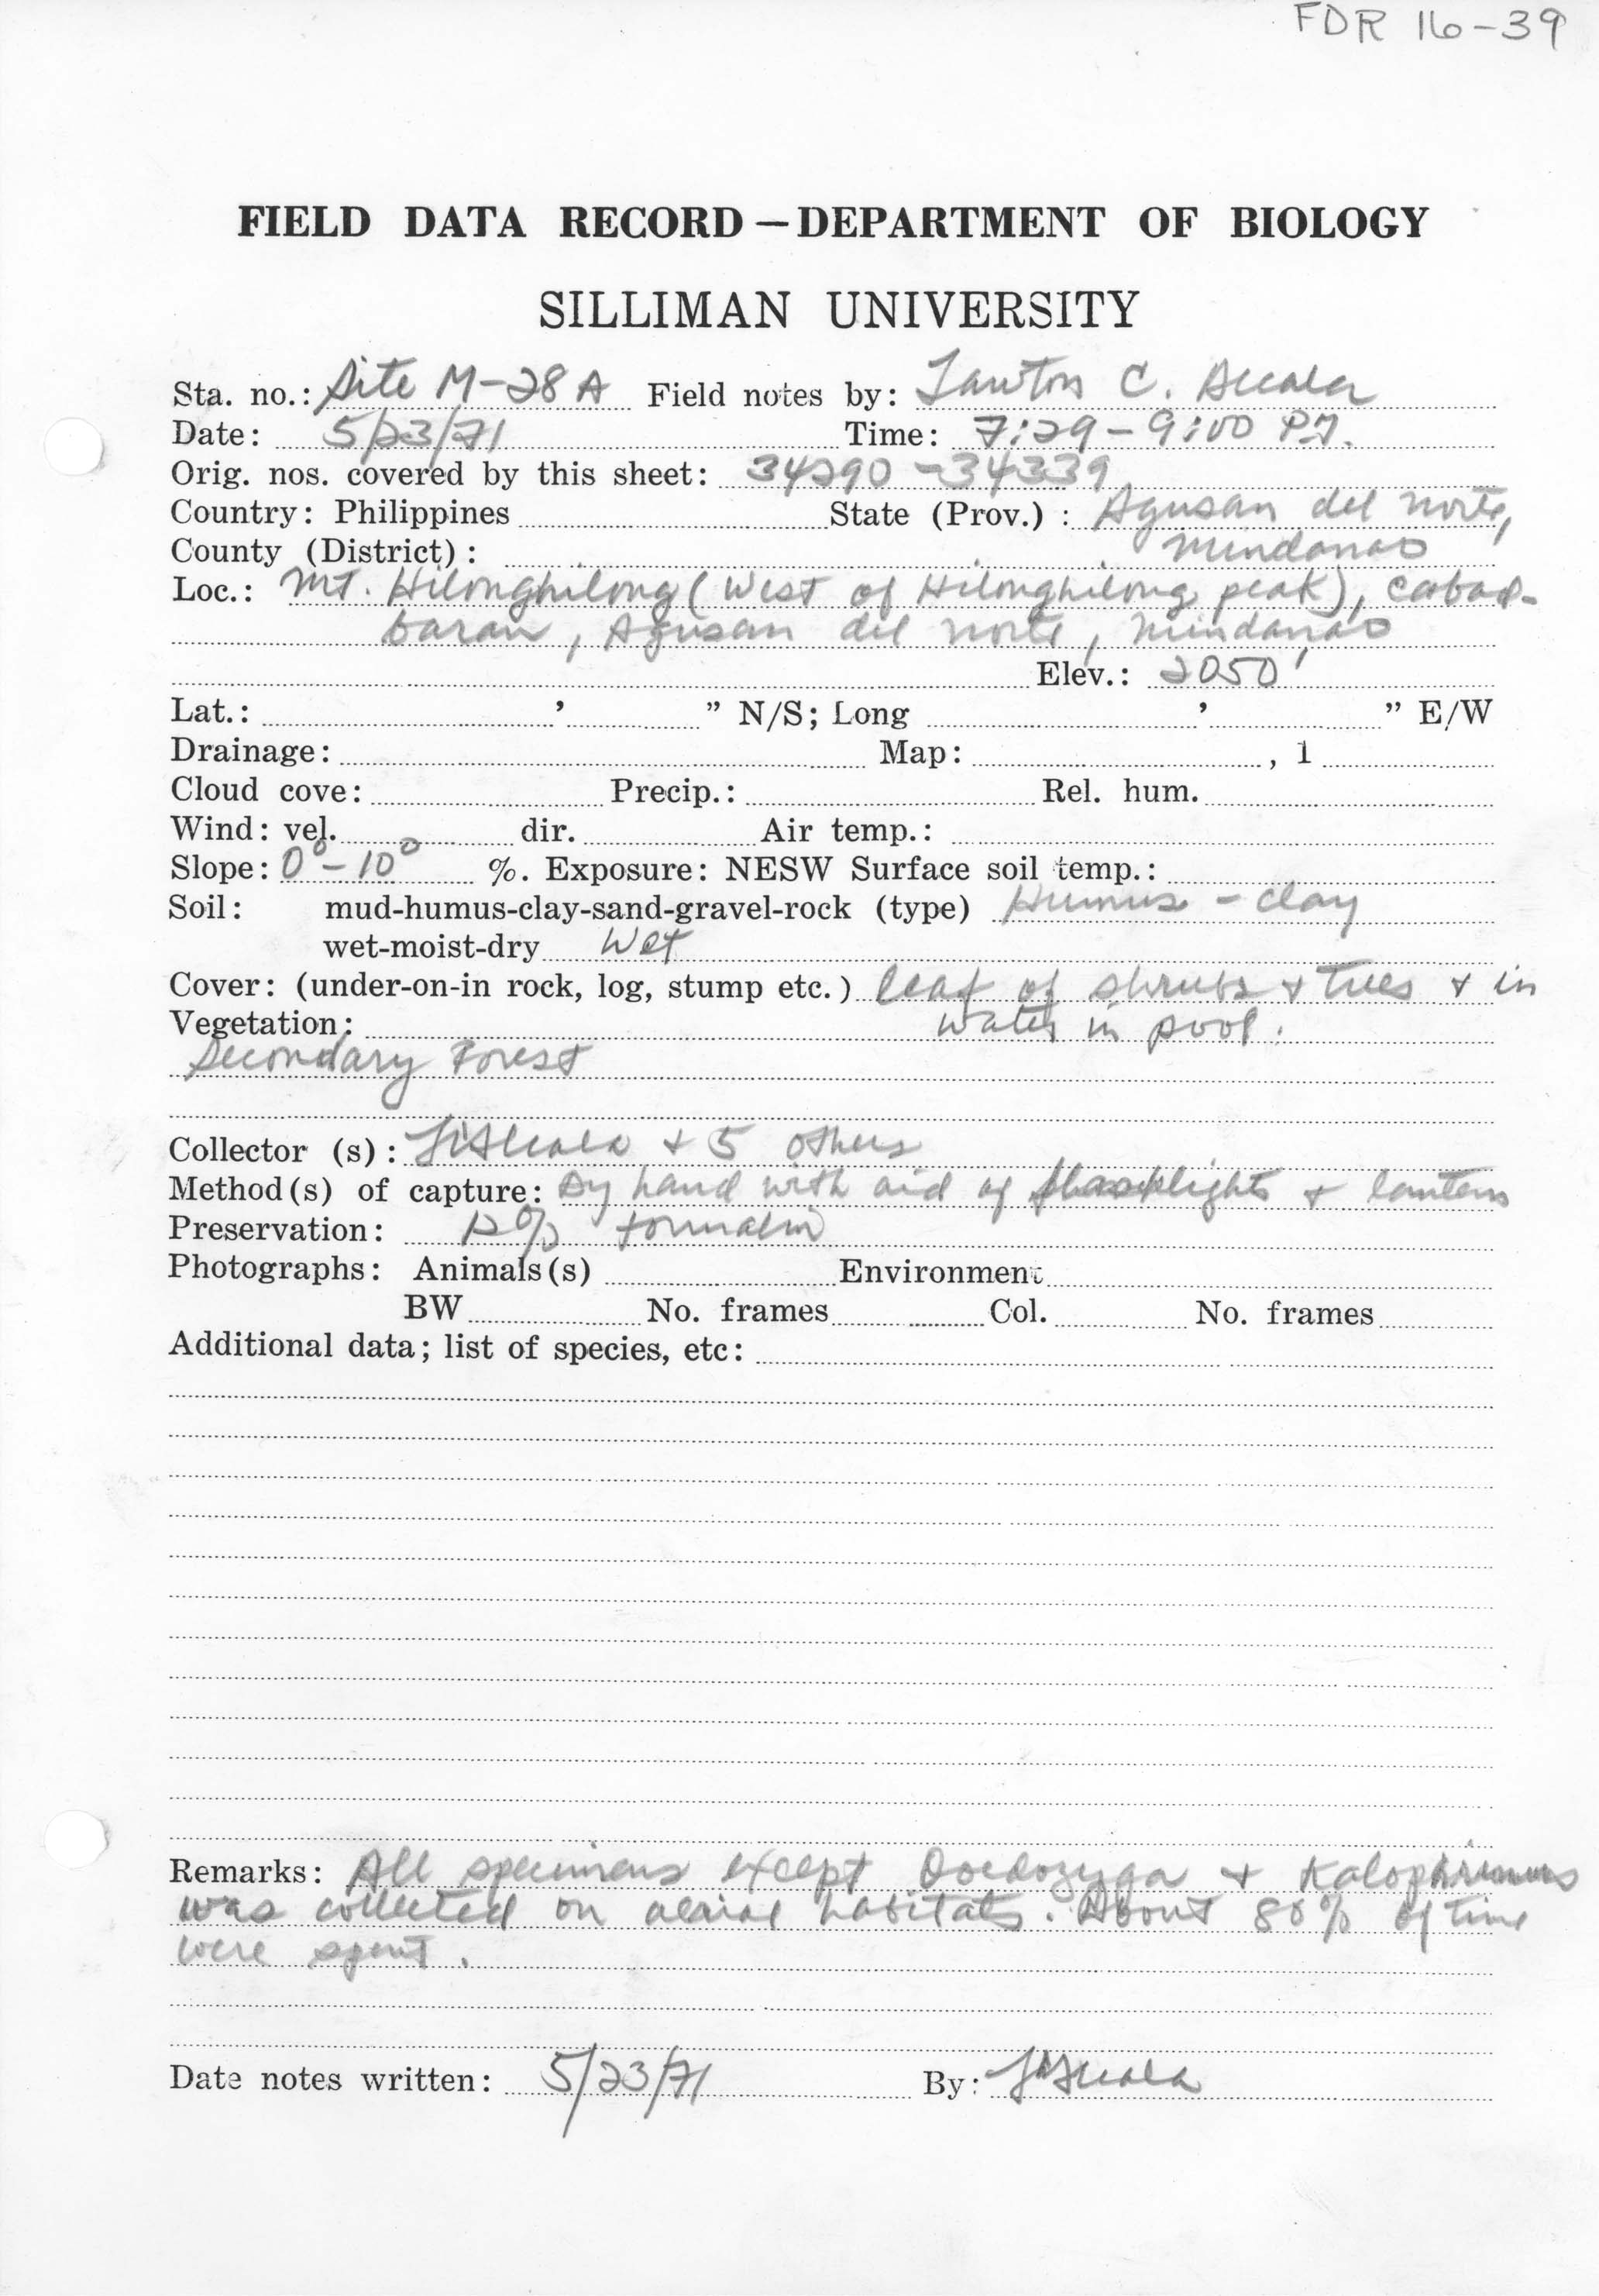 FDR 16-39
FIELD DATA RECORD — DEPARTMENT OF BIOLOGY
SILLIMAN UNIVERSITY
Sta. no.: Site M-28A Field notes by: Lawton C. Alcala
Date: 5/23/71 Time: 7:29-9:00 P.M.
Orig. nos. covered by this sheet: 34290-34339
Country: Philippines State (Prov.): Agusan del Norte,
County (District): Mindanao
Loc.: Mt. Hilonghilong (West of Hilonghilong peak), Cabad-
baran, Agusan del Norte, Mindanao
Elev.: 2050'
Lat.: ' " N/S; Long ' " E/W
Drainage: Map: , 1
Cloud cove: Precip.: Rel. hum.
Wind: vel. dir. Air temp.:
Slope: 0°-10° %. Exposure: NESW Surface soil temp.:
Soil: mud-humus-clay-sand-gravel-rock (type) Humus - clay
wet-moist-dry Wet
Cover: (under-on-in rock, log, stump etc.) leaf of shrubs + trees + in
Vegetation: water in pool.
Secondary Forest
Collector (s): LAlcala + 5 others
Method(s) of capture: By hand with aid of flashlights +
Preservation: 12% formalin
Photographs: Animals(s) Environment
BW No. frames Col. No. frames
Additional data; list of species, etc:
Remarks: All specimens except Ooedozyga + Kalophrinus
was collected on arial habitats. About 80% of time
were spent.
Date notes written: 5/23/71 By: LAlcala